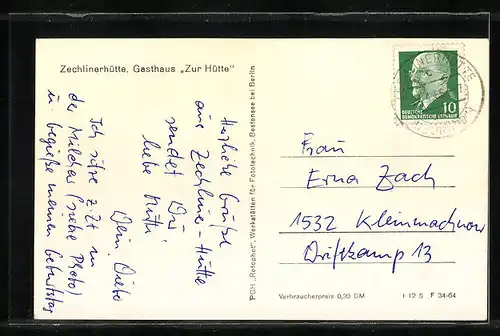 Zechlinerhütte, Gasthaus „Zur Hütte"
Herzliche Grüße
aus Zechliner-Hütte
sendet Dir,
liebe Mutti
Dein
Ich sitze z.Zt. in
der Milchbar (siehe Photo)
u. begieße meinen Geburtstag
PGH „Rotophot", Werkstätten für Fototechnik, Bestensee bei Berlin
DEUTSCHE
DEMOKRATISCHE REPUBLIK
10
Frau
Erna Zach
1532 Kleinmachnow
Driftkamp 13
Verbraucherpreis 0,20 DM
I 12 5 F 34-64